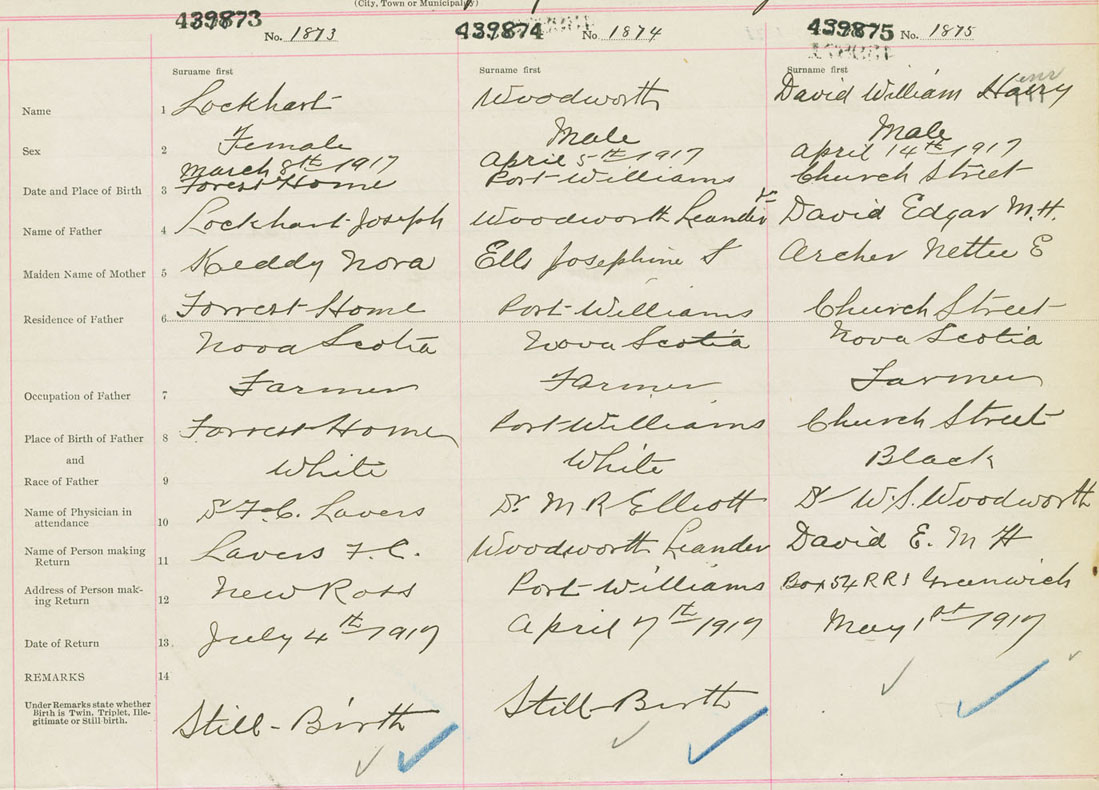 (City, Town or Municipality)
439873 No. 1873 439874 No. 1874 439875 No. 1875
Surname first Surname first Surname first
Name 1 Lockhart Woodworth David William Harry
Sex 2 Female Male Male
March 8th 1917 April 5th 1917 April 14th 1917
Date and Place of Birth 3 Forest Home Port Williams Church Street
Name of Father 4 Lockhart Joseph Woodworth Leander David Edgar M.H.
Maiden Name of Mother 5 Keddy Nora Ells Josephine S Archer Nettie E
Residence of Father 6 Forrest Home Port Williams Church Street
Nova Scotia Nova Scotia Nova Scotia
Occupation of Father 7 Farmer Farmer Farmer
Place of Birth of Father 8 Forrest Home Port Williams Church Street
and
Race of Father 9 White White Black
Name of Physician in
attendance 10 Dr F.C. Lavers Dr. M R Elliott Dr W.S. Woodworth
Name of Person making
Return 11 Lavers F.C. Woodsworth Leander David E. M H
Address of Person mak-
ing Return 12 New Ross Port Williams Box 54 RR1 Greenwich
Date of Return 13 July 4th 1917 April 7th 1917 May 1st 1917
REMARKS 14
Under Remarks state whether
Birth is Twin, Triplet, Ille-
gitimate or Still-birth.
Still-Birth Still-Birth